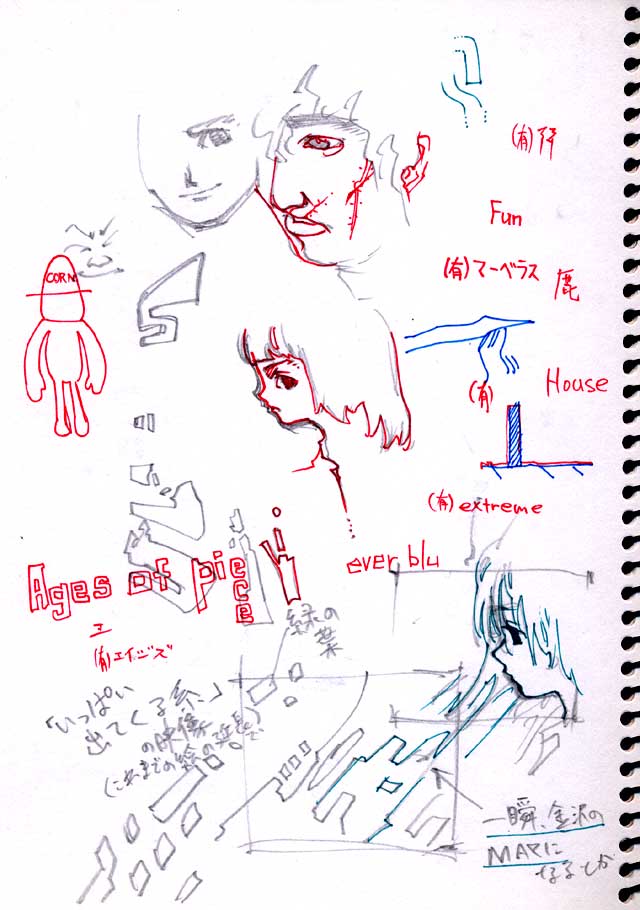 (有)
Fun
(有)マーベラス
鹿
CORN
(有)
House
(有)extreme
ever blu
Ages of piece
エ
(有)エイジズ
緑の
葉
「いっぱい
出てくる系」
の映像
(これまでの絵の延長で
一瞬、金沢の
MAPに
なるとか